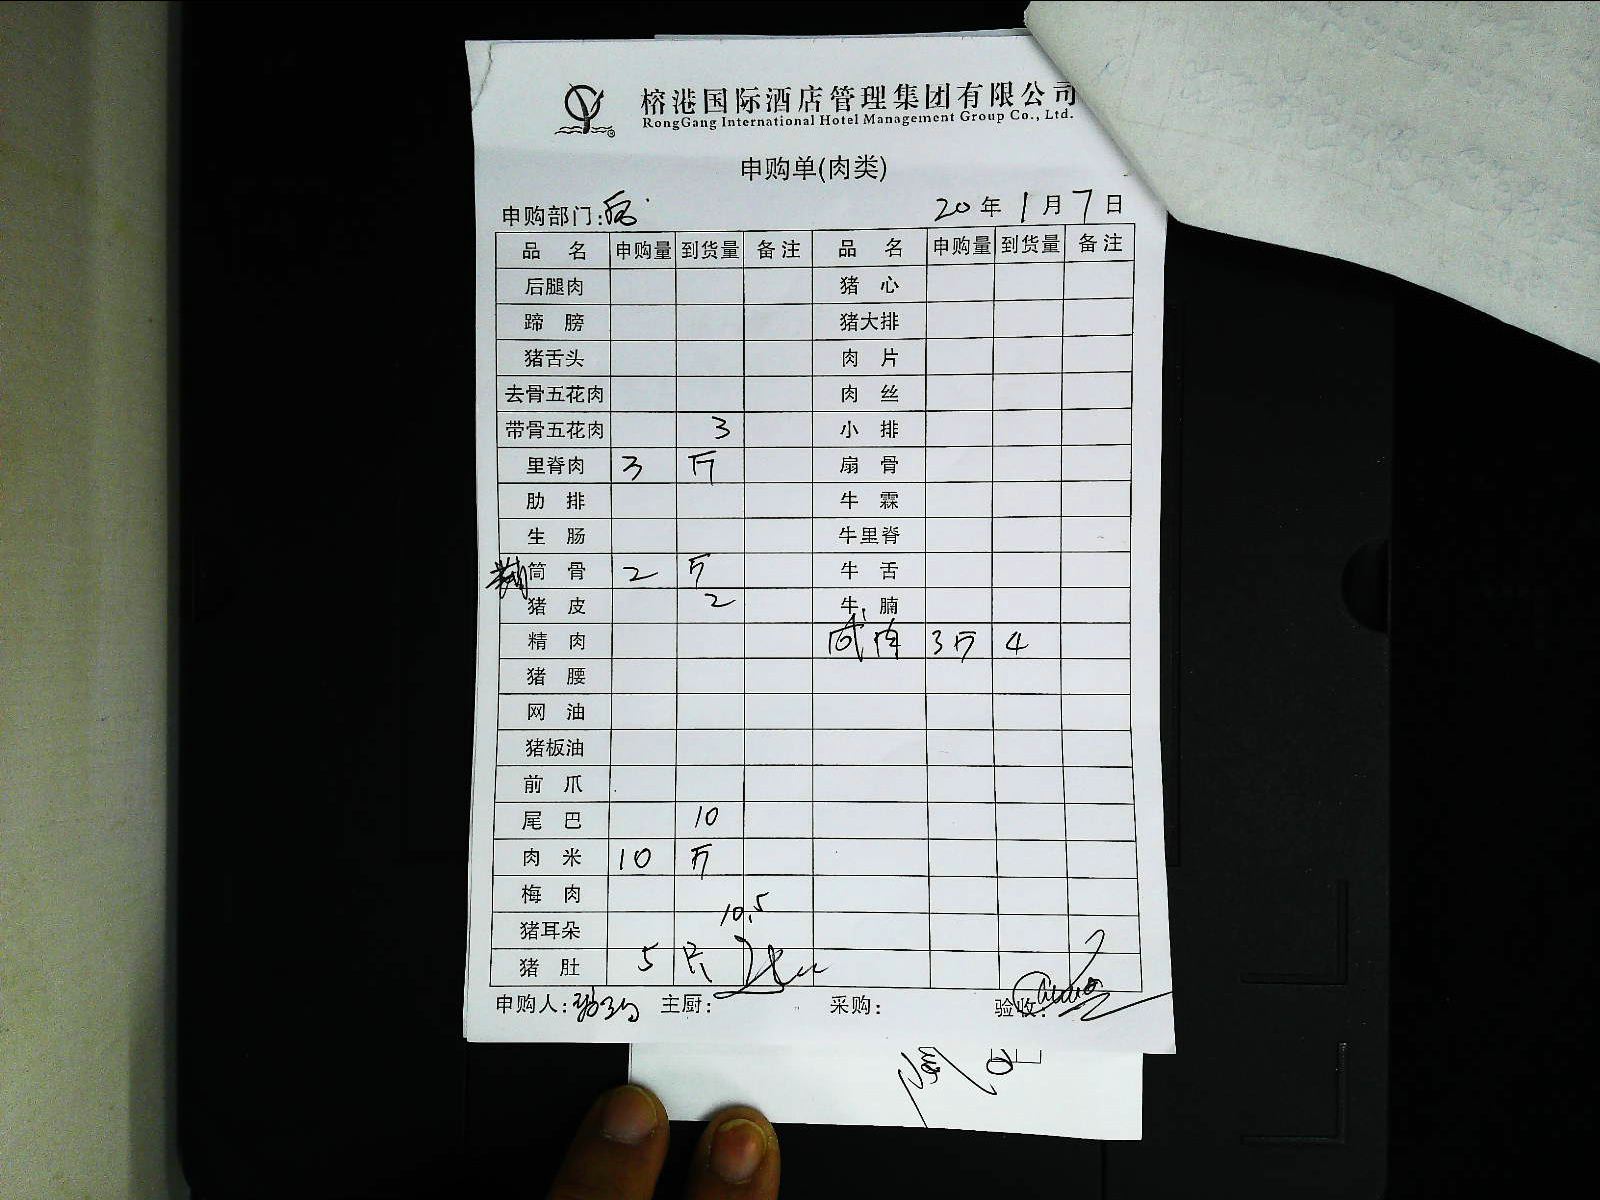 榕港国际酒店管理集团有限公司
RongGang International Hotel Management Group Co., Ltd.
申购单(肉类)
申购部门: 20年1月7日
品名 申购量 到货量 备注 品名 申购量 到货量 备注
后腿肉 猪心
蹄膀 猪大排
猪舌头 肉片
去骨五花肉 肉丝
带骨五花肉 3 小排
里脊肉 3 斤 扇骨
肋排 牛霖
生肠 牛里脊
筒骨 2 斤 牛舌
猪皮 2 牛腩
精肉 咸肉 3斤 4
猪腰
网油
猪板油
前爪
尾巴 10
肉米 10 斤
梅肉
猪耳朵 10.5
猪肚 5 只
申购人: 主厨: 采购: 验收: